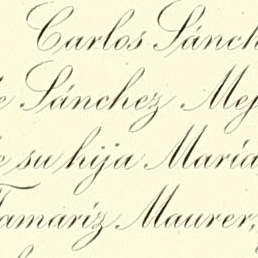 Carlos Sánch
e Sánchez Mej
e su hija María
Tamaríz Maurer,